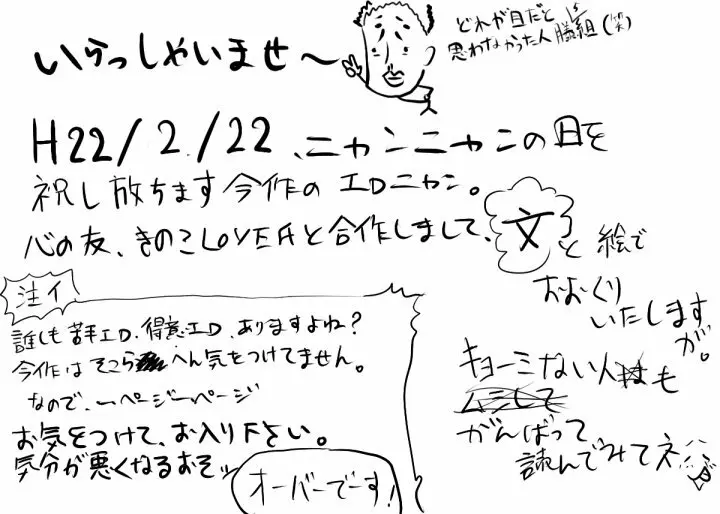 いらっしゃいませ〜
どれが目だと
思わなかった人勝ち組(笑)
H22/2/22、ニャンニャンの日を
祝し放ちます今作のエロニャン。
心の友、きのこLOVERと合作しまして、文と絵で
おおくり
いたします
が。
キョーミない人も
がんばって
読んでみてネ
注イ
誰しも苦手エロ、得意エロ、ありますよね?
今作はそこらへん気をつけてません。
なので、一ページ一ページ
お気をつけて、お入り下さい。
気分が悪くなるおそッ
オーバーでーす!